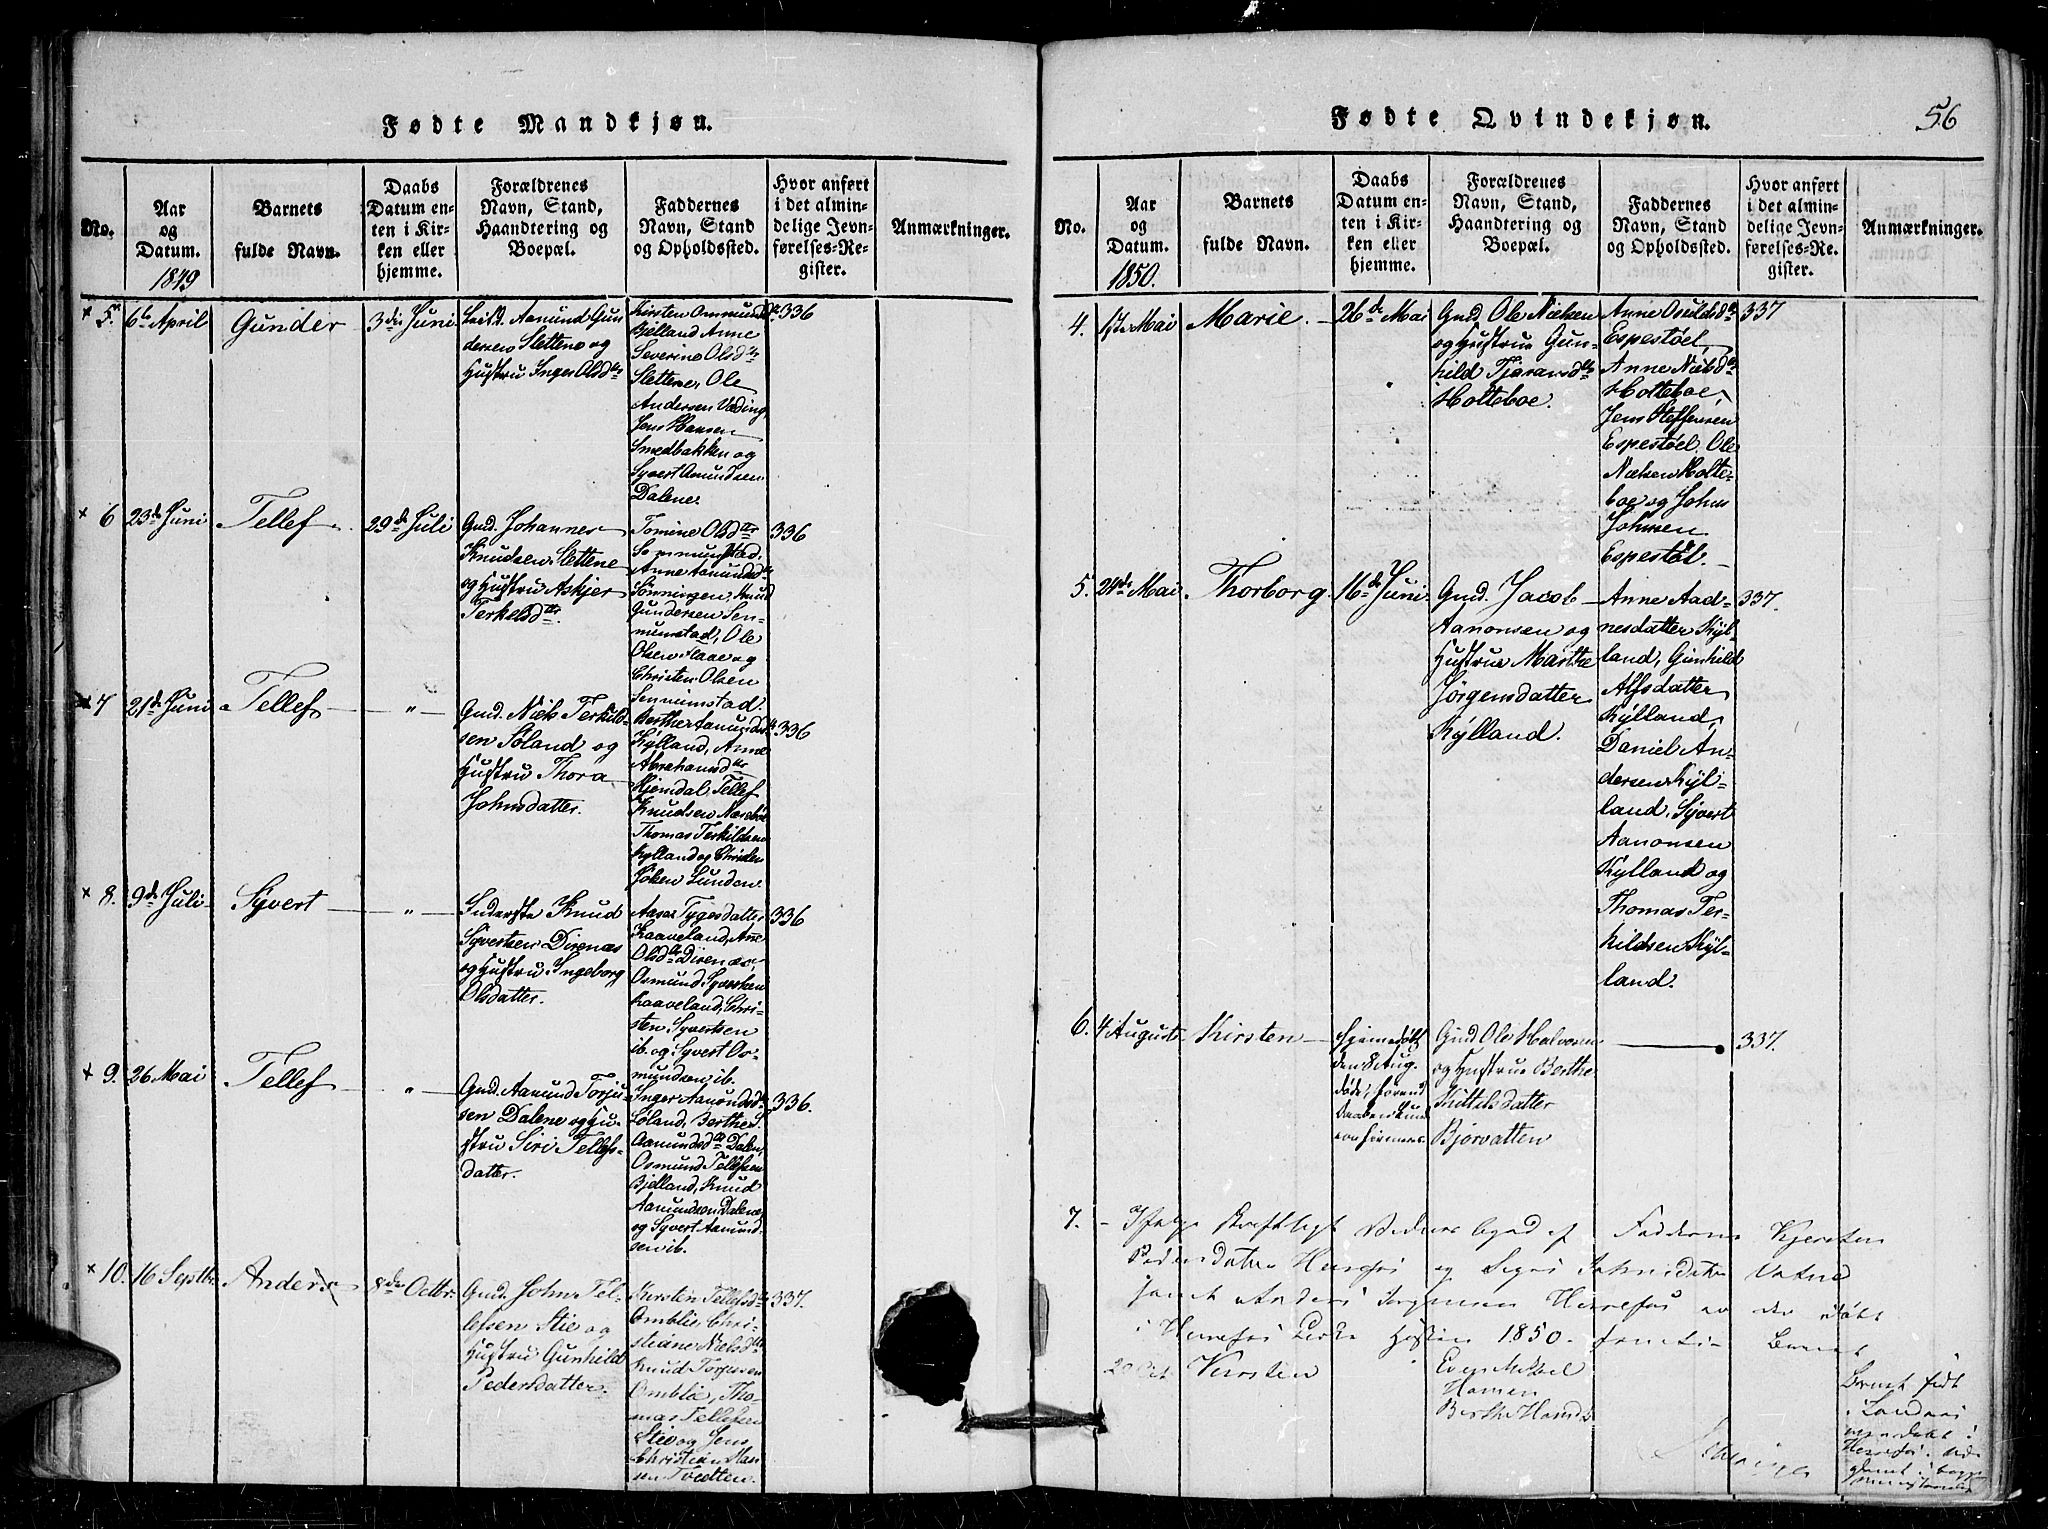 Fødte Mandkjøn.
No.
Aar
og
Datum.
1849
Barnets
fulde Navn.
Daabs
Datum en-
ten i Kir-
ken eller
hjemme.
Forældrenes
Navn, Stand,
Haandtering og
Boepæl.
Faddernes
Navn, Stand
og Opholdssted.
Hvor anført
i det almin-
delige Jevn-
førelses-Re-
gister.
Anmærkninger.
× 5. 6te April
Gunder
3die Juni
Aamund Gun
dersen Slettene og
Hustru Inger Olsdtr
Kirsten Ommunds
Bjelland Anne
Severine Olsdtr
Slettene, Ole
Andersen Væding
Jens Hansen
Smedbakken og
Syvert Asmundsen
Dalene.
336
× 6 23de Juni
Tellef
29de Juli
Gmd. Johannes
Knudsen Slettene
og Hustru Askjer
Terkelsdtr.
Tomine Olsdtr
Senumstad.
Anne Aamundsdtr
Knud
Gundersen Sen-
numstad, Ole
Olsen Flaae og
Christen Olsen
Sennumstad.
336
× 7 21de Juni
Tellef
"
Gmd. Niels Terkild-
sen Søland og
Hustru Thora
Johnsdatter.
Berthe Aamundsdtr
Kylland, Anne
Abrahamsdtr
Hjemdal, Tellef
Knudsen
Thomas Terkildsen
Kylland og Christen
Lunden.
336
× 8. 9de Juli
Syvert
"
Inderste Knud
Syvertsen Direnæs
og Hustru Ingeborg
Olsdatter.
Aase Tygesdatter
Kaaveland, Anne
Olsdtr Direnæs,
Osmund Syvertsen
Kaaveland, Chri-
sten Syvertsen
ib. og Syvert Os-
mundsen ib.
336
× 9. 26 Mai
Tellef
"
Gmd. Aamund Torju-
sen Dalene og Hu-
stru Siri Tellefs-
datter.
Inger Aamundsdtr
Løland, Berthe
Aamundsdtr Dalen,
Osmund Tellefsen
Bjelland, Knud
Aamundsen Dalene
og Syvert Aamund-
sen ib.
336.
× 10. 16 Septbr.
Anders
8de Octbr.
Gmd. John Tel-
lefsen Stie og
Hustru Gunhild
Pedersdatter.
Kirsten Tellefsdtr
Omblie, Chri-
stiane Nielsdtr
Knud Torjusen
Omblie, Tho-
mas Tellefsen
Stie og Jens
Christian Han
sen Tvedten.
337.
Fødte Qvindekjøn.
56
No.
Aar
og
Datum.
1850.
Barnets
fulde Navn.
Daabs
Datum en-
ten i Kir-
ken eller
hjemme.
Forældrenes
Navn, Stand,
Haandtering og
Boepæl.
Faddernes
Navn, Stand
og Opholdssted.
Hvor anført
i det almin-
delige Jevn-
førelses-Re-
gister.
Anmærkninger.
4. 17de Mai
Marie.
26de Mai
Gmd. Ole Nielsen
og Hustrue Gun-
hild Tjøransdtr
Holteboe.
Anne Osuldsdtr
Espestøel,
Anne Nielsdtr
Holteboe,
Jens Steffensen
Espestøel, Ole
Nielsen Holte-
boe og Johns
Johnsen
Espestøl.
337
5. 24de Mai
Thorborg
16de Juni
Gmd. Jacob
Aanonsen og
Hustrue Marthe
Jørgensdatter
Kylland.
Anne Aad-
nesdatter Kyl-
land, Gunhild
Alfsdatter
Kylland,
Daniel An-
dersen Kyl-
land, Syvert
Aanonsen
Kylland og
Thomas Ter-
kildsen Kyl-
land.
337.
6. 4 August
Kirsten
Hjemedøbt
den 8 Aug.
døde, forend
Gmd Ole Halvorsen
og Hustrue Berthe
Kittelsdatter
Bjorvatten
337.
7. - Ifølge Skriftligt af Fadderne Kjersten
Pedersdatter Herefos og Johnsdatter Vatne
samt Anders Jørgensen Herrefos er der døbt
i Herrefos Kirke Høsten 1850.
20 Oct
Kirsten
Even Mikkel
Hansen
Berthe Hansd
Barnet født
i
døbt i
Herrefos